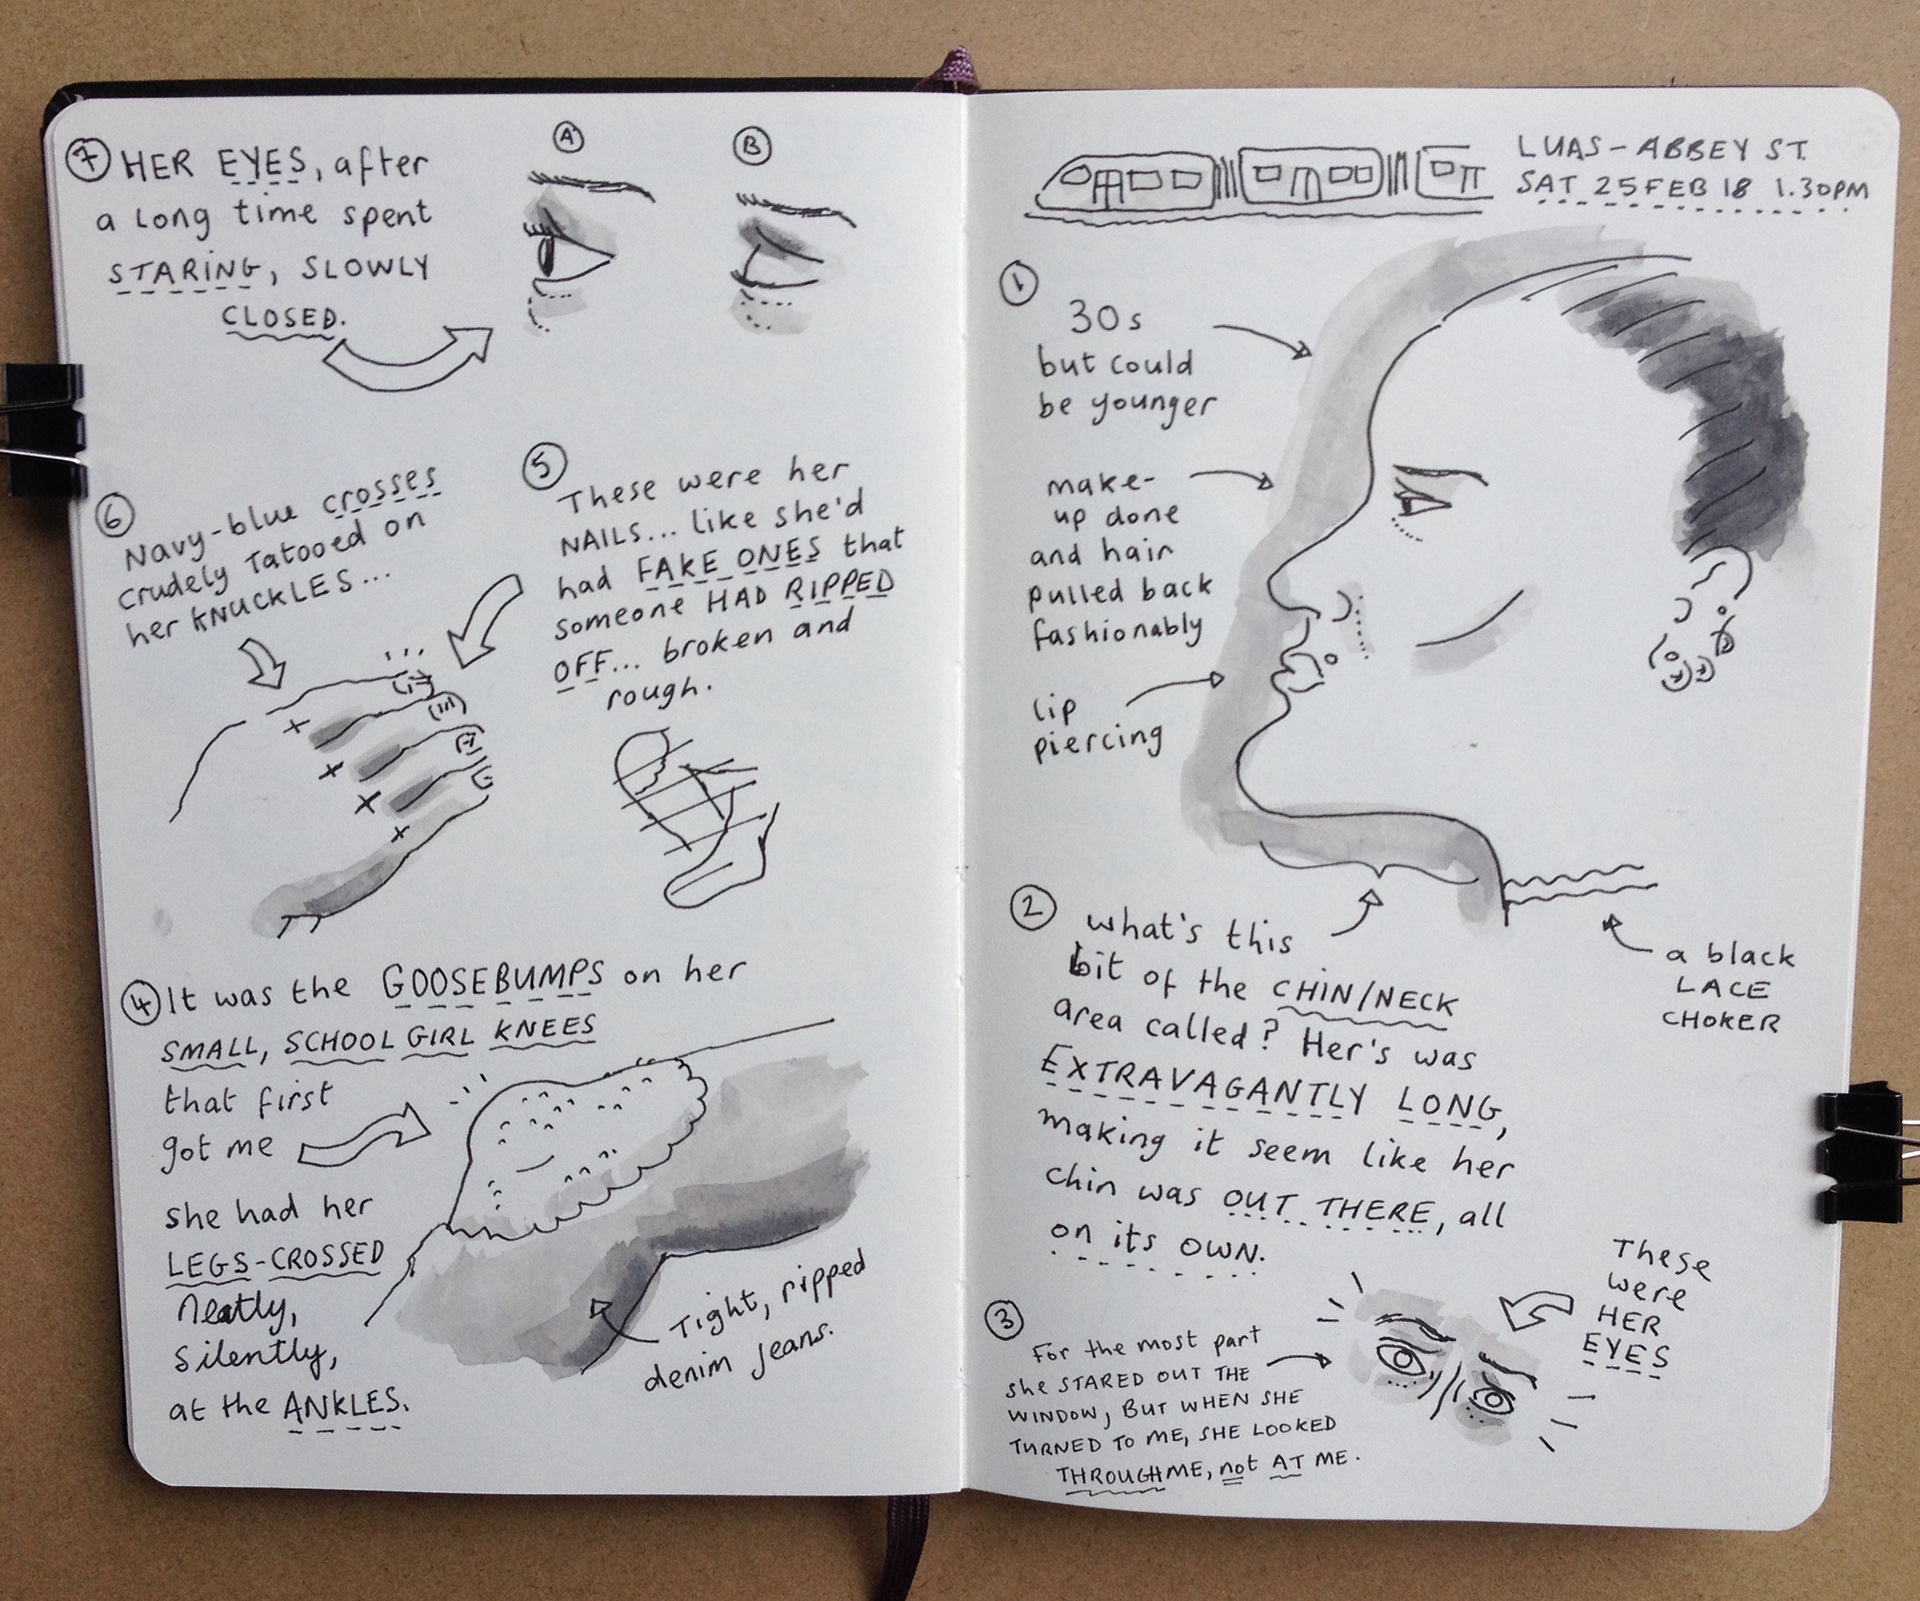 LUAS-ABBEY ST.
SAT 25 FEB 18 1.30PM
1
30s
but could
be younger
make-
up done
and hair
pulled back
fashionably
lip
piercing
2
what's this
bit of the CHIN/NECK
area called? Her's was
EXTRAVAGANTLY LONG,
making it seem like her
chin was OUT THERE, all
on its OWN.
a black
LACE
CHOKER
3
For the most part
she STARED OUT THE
WINDOW, BUT WHEN SHE
TURNED TO ME, SHE LOOKED
THROUGH ME, not AT ME.
These
were
HER
EYES
4 It was the GOOSEBUMPS on her
SMALL, SCHOOL GIRL KNEES
that first
got me
she had her
LEGS-CROSSED
neatly,
silently,
at the ANKLES.
Tight, ripped
denim jeans.
5
These were her
NAILS... like she'd
had FAKE ONES that
someone HAD RIPPED
OFF... broken and
rough.
6
Navy-blue crosses
crudely Tatooed on
her KNUCKLES...
7 HER EYES, after
a long time spent
STARING, SLOWLY
CLOSED.
A
B